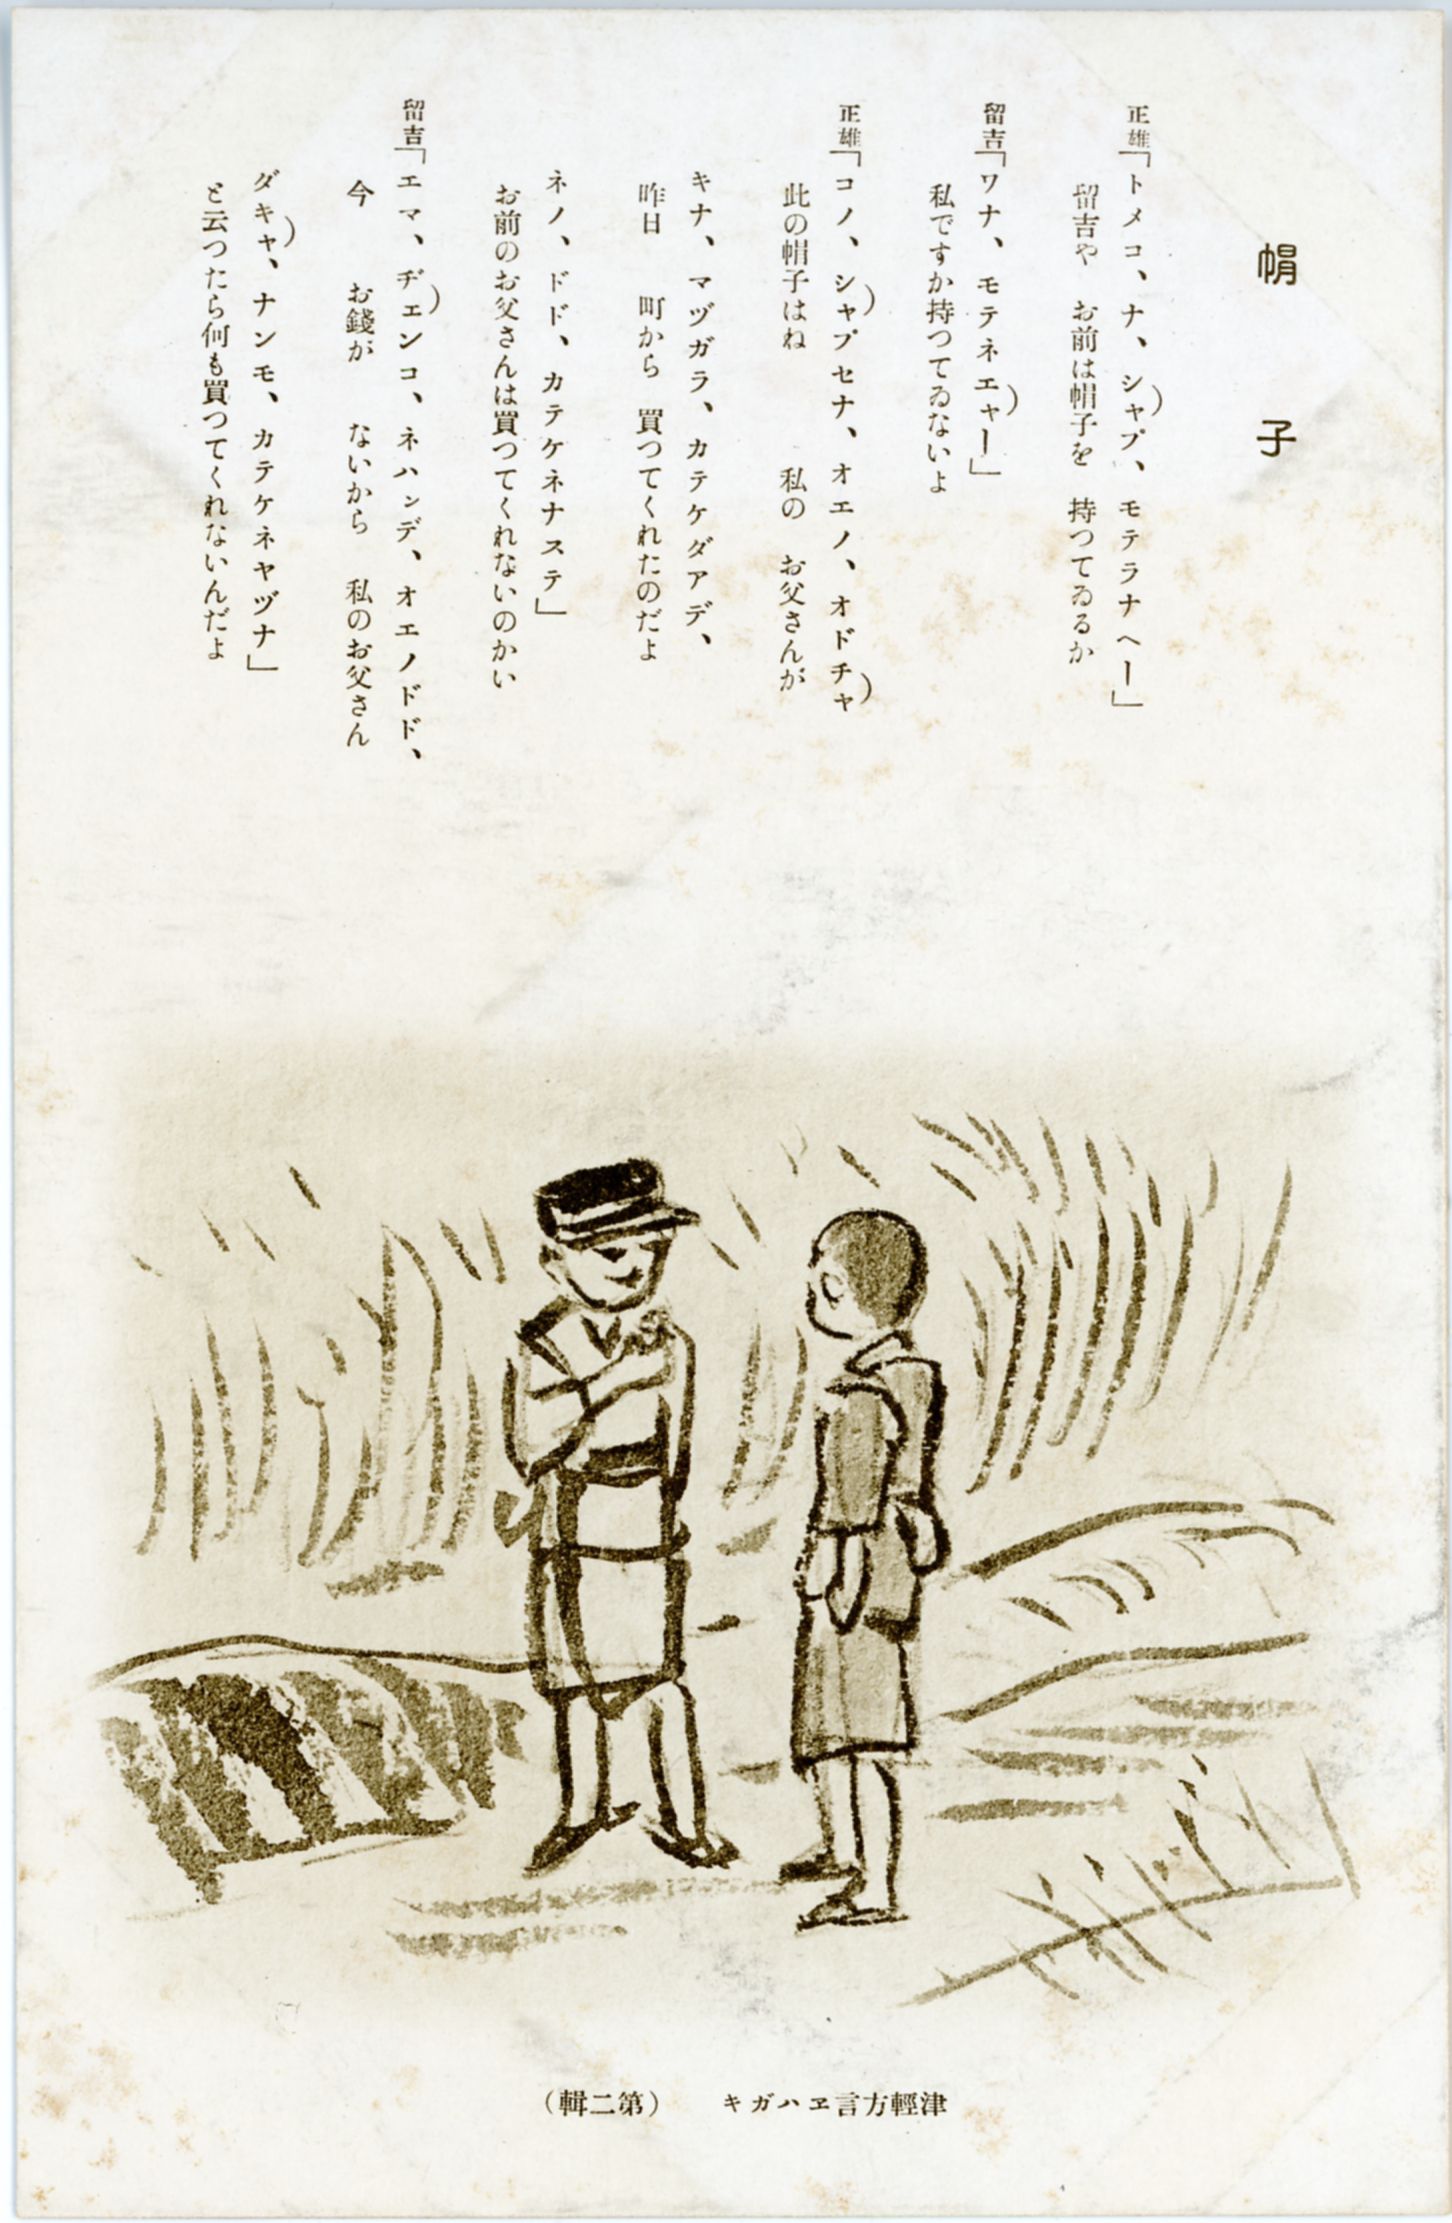 帽子
正雄「トメコ、ナ、シャプ、モテラナヘー」
留吉や　お前は帽子を　持つてゐるか
留吉「ワナ、モテネエャー」
私ですか持つてゐないよ
正雄「コノ、シャプセナ、オエノ、オドチャ
此の帽子はね　私の　お父さんが
キナ、マヅガラ、カテケダアデ、
昨日　町から　買つてくれたのだよ
ネノ、ドド、カテケネナステ」
お前のお父さんは買つてくれないのかい
留吉「エマ、ヂェンコ、ネハンデ、オエノドド、
今　お錢が　ないから　私のお父さん
ダキャ、ナンモ、カテケネヤヅナ」
と云つたら何も買つてくれないんだよ
（輯二第）　キガハヱ言方輕津